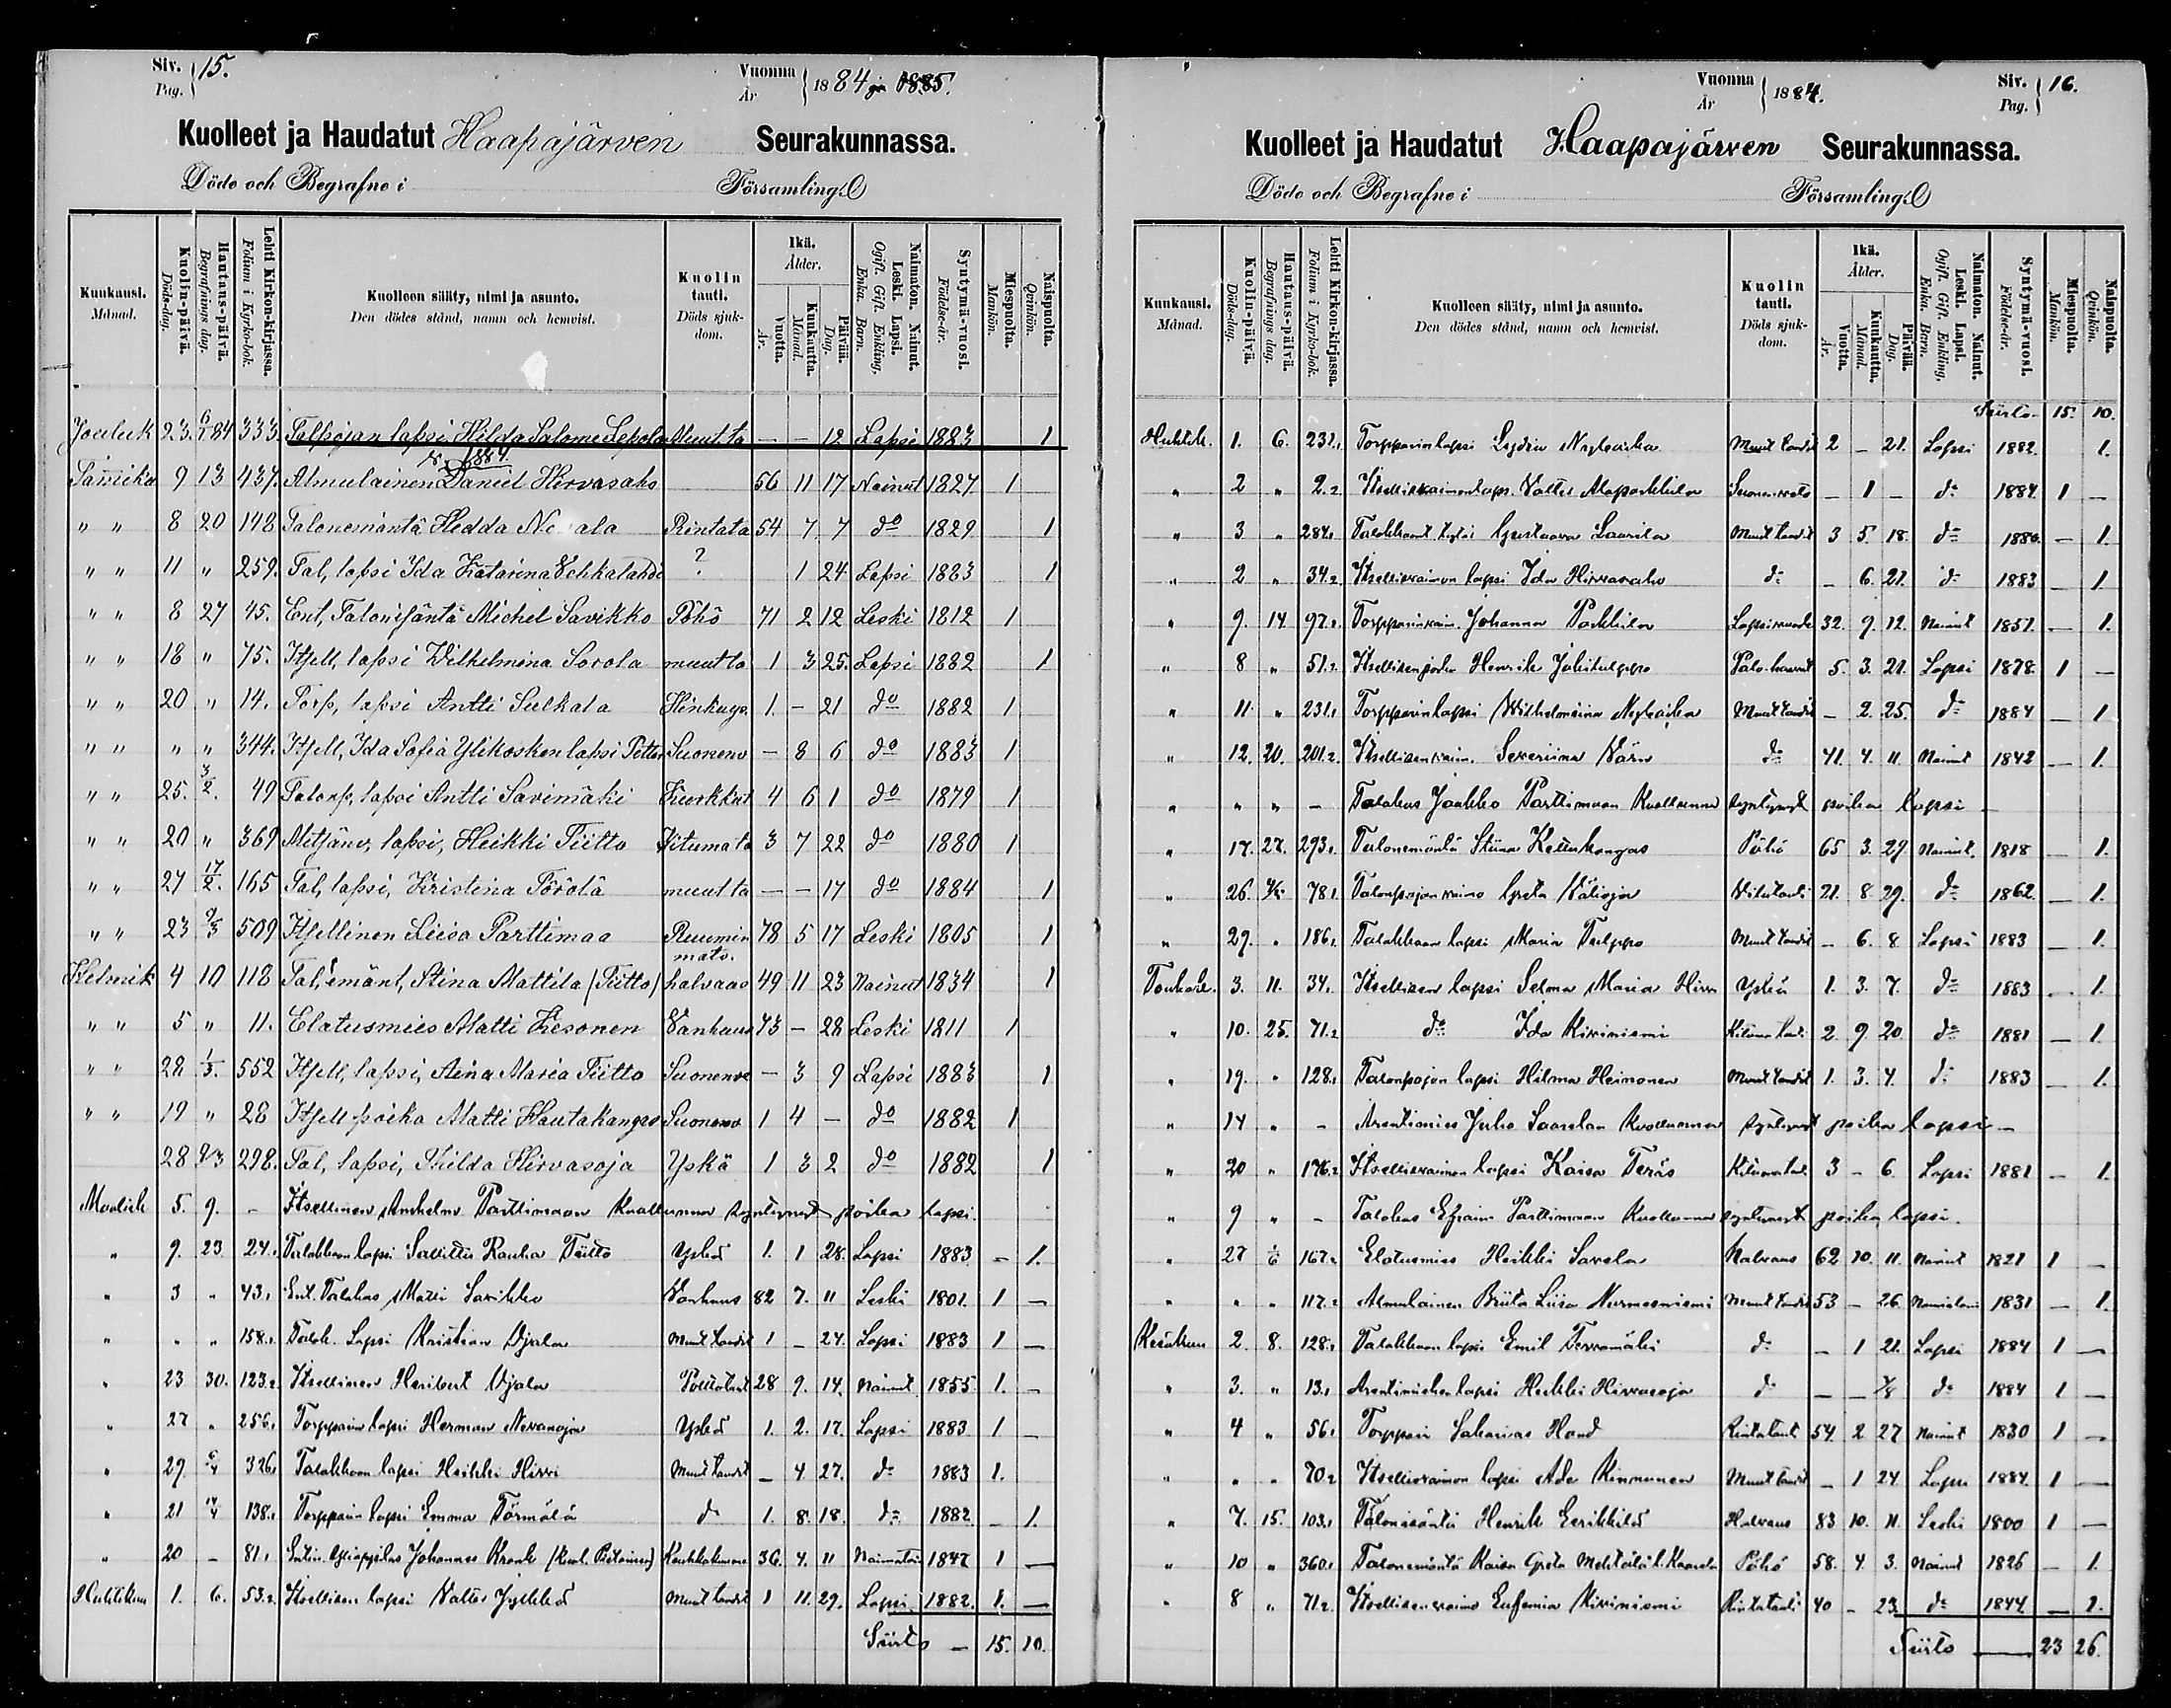 Siv. Pag. 15.
Vuonna År 1884 ja 1885.
Kuolleet ja Haudatut Haapajärven Seurakunnassa.
Döde och Begrafne i Församling.
Kuukausi. Månad. Kuolin-päivä. Döds-dag. Hautaus-päivä. Begrafnings dag. Lehti Kirkon-kirjassa. Folium i Kyrko-bok. Kuolleen sääty, nimi ja asunto. Den dödes stånd, namn och hemvist. Kuolin tauti. Döds sjukdom. Ikä. Ålder. Vuotta. År. Kuukautta. Månad. Päivää. Dag. Naimaton. Nainut. Leski. Lapsi. Ogift. Gift. Enkling. Enka. Barn. Syntymä-vuosi. Födelse-år. Miespuolta. Mankön. Naispuolta. Qvinkön.
Jouluk 23. 6/1 84 333 Talpojan lapsi Hilda Salome Lepola Muut ta — — 12 Lapsi 1883 1
v. 1884.
Tammika 9 13 437. Almulainen Daniel Hirvasaho 56 11 17 Nainut 1827 1
" " 8 20 148 Talonemäntä Hedda Rintata 54 7 7 do 1829 1
" " 11 " 259. Tal, lapsi Ida Katarina ? 1 24 Lapsi 1883 1
" " 8 27 45. Ent, Talonisäntä Michel Savikko Pöhö 71 2 12 Leski 1812 1
" " 18 " 75. Itsell, lapsi Wilhelmina Sorola muut ta 1 3 25. Lapsi 1882 1
" " 20 " 14. Torp, lapsi Antti Sulkala Hinkuys. 1. — 21 do 1882 1
" " " " 344. Itsell, Ida Sofia Ylikosken lapsi Petter Suonenv — 8 6 do 1883 1
" " 25. 3/2. 49 Talonp, lapsi Antti Savimäki Kurkkut 4 6 1 do 1879 1
" " 20 " 369 Metsänv, lapsi, Heikki Tiitto Kitumata 3 7 22 do 1880 1
" " 27 17/2. 165 Tal, lapsi, Kristina Pörölä muut ta — — 17 do 1884 1
" " 23 9/3 509 Itsellinen Liisa Parttimaa Ruumin mato. 78 5 17 Leski 1805 1
Helmik 4 10 118 Tal, emänt, Stina Mattila (Tiitto) halvaus 49 11 23 Nainut 1834 1
" " 5 " 11. Elatusmies Matti Kesonen Vanhuus 73 — 28 Leski 1811 1
" " 28 1/3. 552 Itsell, lapsi, Aina Maria Tiitto Suonenve — 3 9 Lapsi 1883 1
" " 19 " 28 Itsell poika Matti Hautakangas Suonenv 1 4 — do 1882 1
28 9/3 298. Tal, lapsi, Hilda Hirvasoja Yskä 1 3 2 do 1882 1
Maalisk 5. 9. - Itsellinen Anshelm Parttimaan Kuollunna syntynyt poika lapsi.
" 9. 23. 24.1 Talokkaan lapsi Rauha Tiitto Yskä 1. 1 28. Lapsi 1883. - 1.
" 3 " 43.1 Ent. Talokas Matti Savikko Vanhuus 82 7. 11 Leski 1801. 1 —
" " " 158.1 Talok. Lapsi Kristian Ojala Muut taudit 1 - 24. Lapsi 1883 1 —
" 23 30. 123.2 Itsellinen Heribert Ojala Polttotaut 28 9. 14. Nainut 1855 1. -
" 27 " 256.1 Torpparin lapsi Herman Nevanoja Yskä 1. 2. 17. Lapsi 1883 1 -
" 29. 6/4 326.1 Talokkaan lapsi Heikki Hirvi Muut taudit - 4. 27. do 1883 1.
" 21 14/4 138.1 Torpparin lapsi Emma Törmälä do 1. 8. 18. do 1882. - 1.
" 20 - 81.1 Entin. Ylioppilas Johannes Krank 36. 4. 11 Naimaton 1847 1 —
Huhtikuu 1. 6. 53.2 Itsellisen lapsi Valter Jylkkä Muut taudit 1 11. 29. Lapsi 1882. 1. —
Siirto — 15. 10.
Vuonna År 1884.
Siv. Pag. 16.
Kuolleet ja Haudatut Haapajärven Seurakunnassa.
Döde och Begrafne i Församling.
Kuukausi. Månad. Kuolin-päivä. Döds-dag. Hautaus-päivä. Begrafnings dag. Lehti Kirkon-kirjassa. Folium i Kyrko-bok. Kuolleen sääty, nimi ja asunto. Den dödes stånd, namn och hemvist. Kuolin tauti. Döds sjukdom. Ikä. Ålder. Vuotta. År. Kuukautta. Månad. Päivää. Dag. Naimaton. Nainut. Leski. Lapsi. Ogift. Gift. Enkling. Enka. Barn. Syntymä-vuosi. Födelse-år. Miespuolta. Mankön. Naispuolta. Qvinkön.
Siirto. 15. 10.
Huhtik. 1. 6. 231.1 Torpparin lapsi Lydia Muut taudit 2 - 21. Lapsi 1882. 1.
" 2 " 2.2 Itsellisvaimon laps. Valter Alaparkkila Suonenveto - 1 - do 1884. 1 —
" 3 " 284.1 Talokkaat tytär Gustaava Laurila Muut taudit 3 5. 18. do 1880. — 1.
" 2 " 34.2 Itsellisvaimon lapsi Ida Hirvasaho do - 6. 21. do 1883 - 1.
" 9. 14. 97.2 Torpparinvaim. Johanna Parkkila Lapsivuode 32. 9. 12. Nainut 1851. — 1.
" 8 " 51.2 Itsellisen poika Henrik Jokitulppo 5. 3. 21. Lapsi 1878. 1 —
" 11 " 231.1 Torpparin lapsi Wilhelmiina Muut taudit - 2. 25. do 1884 — 1
" 12. 20. 201.2 Itsellisen vaim. Severiina Värn do 41. 4. 11. Nainut 1842 — 1.
" " " - Talokas Jaakko Parttimaan Kuollunna syntynyt poika lapsi —
" 17. 27. 293.1 Talonemäntä Stiina Kettukangas Pöhö 65 3. 29. Nainut. 1818 — 1.
" 26. 4/5. 78.1 Talonpojan vaimo Greta Välioja Vilutauti 21. 8. 29. do 1862. — 1.
" 29. " 186.1 Talokkaan lapsi Maria Tulppo Muut taudit - 6. 8 Lapsi 1883 — 1.
Toukok. 3. 11. 34. Itsellisen lapsi Selma Maria Hirvi Yskä 1. 3. 7. do 1883 - 1.
" 10. 25. 71.2 do Ida Kiviniemi Kituma taut. 2. 9. 20 do 1881 — 1
" 19. " 128.1 Talonpojan lapsi Hilma Heinonen Muut taudit 1. 3. 4. do 1883 — 1.
" 14 " - Arentimies Juho Saarelan Kuollunna syntynyt poika lapsi —
" 20 " 176.2 Itsellisvaimon lapsi Kaisa Teräs Kitumataut 3 - 6. Lapsi 1881 — 1.
" 9 " - Talokas Efraim Parttimaan Kuollunna syntynyt poika lapsi.
" 27 1/6 167.2 Elatusmies Heikki Savela Halvaus 62 10. 11. Nainut 1821 1 -
" " " 117.2 Almulainen Briita Liisa Nurmesniemi Muut taudit 53 - 26. Naimaton 1831 — 1.
Kesäkuu 2. 8. 128.1 Talokkaan lapsi Emil Tervamäki do - 1 21. Lapsi 1884 1 —
" 3. " 13.1 Arentimiehen lapsi Heikki Hirvasoja do — — 7/8 do 1884 1 -
" 4 " 56.1 Torppari Sakarias Hand Rintataut 54. 2 27 Nainut 1830 1 —
" " " 70.2 Itsellisvaimon lapsi Ada Kinnunen Muut taudit - 1 24. Lapsi 1884. 1 —
" 7. 15. 103.1 Talonisäntä Henrik Eerikkilä Halvaus 83 10. 11. Leski 1800 1 —
" 10 " 360.1 Talonemäntä Kaisa Greta Pöhö 58. 4 3. Nainut 1826 — 1.
" 8 " 71.2 Itsellisen vaimo Eufemia Kiviniemi Rintatauti 40 - 23. do 1844. — 1.
Siirto — 23 26.